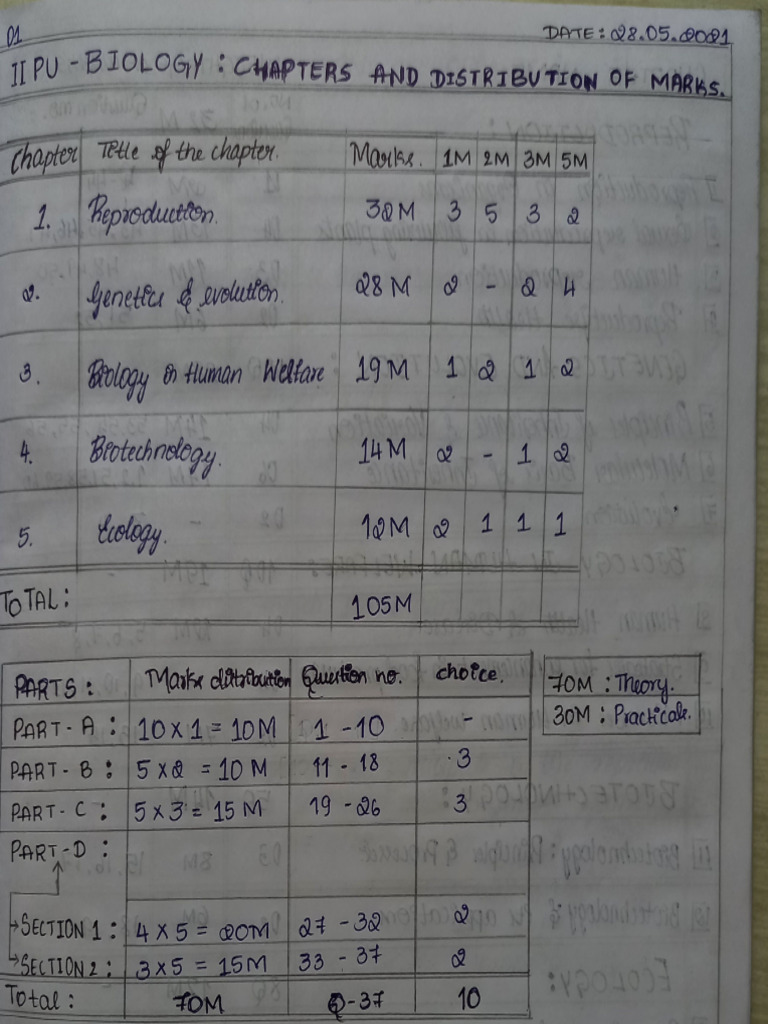 01
DATE: 28.05.2021
II PU - BIOLOGY : CHAPTERS AND DISTRIBUTION OF MARKS.
Chapter Title of the chapter. Marks. 1M 2M 3M 5M
1. Reproduction. 32M 3 5 3 2
2. Genetics & evolution. 28M 2 - 2 4
3. Biology in Human Welfare 19M 1 2 1 2
4. Biotechnology. 14M 2 - 1 2
5. Ecology. 12M 2 1 1 1
TOTAL: 105M
PARTS: Marks distribution Question no. choice.
PART-A: 10 x 1 = 10M 1 - 10 -
PART-B: 5 x 2 = 10 M 11 - 18 3
PART-C: 5 x 3 = 15 M 19 - 26 3
PART-D:
SECTION 1: 4 x 5 = 20M 27 - 32 2
SECTION 2: 3 x 5 = 15M 33 - 37 2
Total: 70M -37 10
70M : Theory.
30M : Practicals.